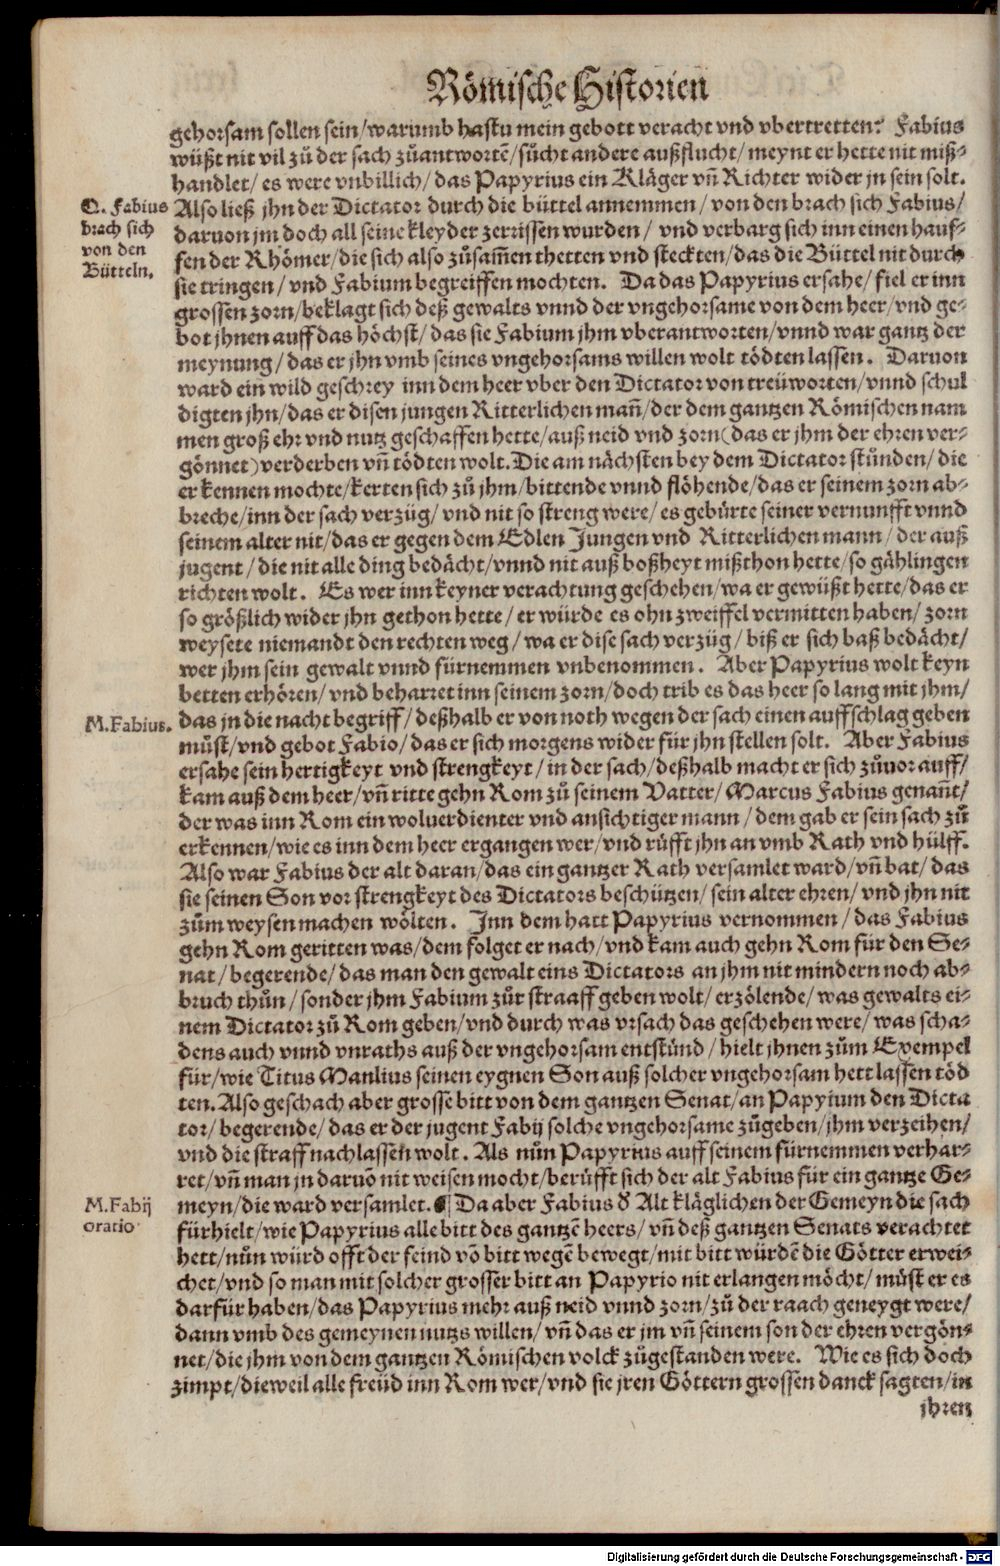 Römische Historien
gehorsam sollen sein/warumb hastu mein gebott veracht vnd vbertretten? Fabius
wüßt nit vil zů der sach zůantwortē/sůcht andere außflucht/meynt er hette nit miß-
handlet/es were vnbillich/das Papyrius ein Kläger vñ Richter wider jn sein solt.
Q. Fabius
brach sich
von den
Bütteln.
Also ließ jhn der Dictator durch die büttel annemmen/von den brach sich Fabius/
daruon jm doch all seine kleyder zerrissen wurden/ vnd verbarg sich inn einen hauf-
fen der Rhömer/die sich also zůsam̃en thetten vnd steckten/das die Büttel nit durch
sie tringen/vnd Fabium begreiffen mochten. Da das Papyrius ersahe/fiel er inn
grossen zorn/beklagt sich deß gewalts vnnd der vngehorsame von dem heer/vnd ge-
bot jhnen auff das höchst/das sie Fabium jhm vberantworten/vnnd war gantz der
meynung/das er jhn vmb seines vngehorsams willen wolt tödten lassen. Daruon
ward ein wild geschrey inn dem heer vber den Dictator von treüworten/vnnd schul
digten jhn/das er disen jungen Ritterlichen mañ/der dem gantzen Römischen nam
men groß ehr vnd nutz geschaffen hette/auß neid vnd zorn(das er jhm der ehren ver-
gönnet)verderben vñ tödten wolt. Die am nächsten bey dem Dictator stůnden/die
er kennen mochte/kerten sich zů jhm/bittende vnnd flöhende/das er seinem zorn ab-
breche/inn der sach verzüg/vnd nit so streng were/es gebürte seiner vernunfft vnnd
seinem alter nit/das er gegen dem Edlen Jungen vnd Ritterlichen mann/der auß
jugent/die nit alle ding bedächt/vnnd nit auß boßheyt mißthon hette/so gählingen
richten wolt. Es wer inn keyner verachtung geschehen/wa er gewüßt hette/das er
so größlich wider jhn gethon hette/er würde es ohn zweiffel vermitten haben/zorn
weysete niemandt den rechten weg/wa er dise sach verzüg/biß er sich baß bedächt/
wer jhm sein gewalt vnnd fürnemmen vnbenommen. Aber Papyrius wolt keyn
betten erhören/vnd beharret inn seinem zorn/doch trib es das heer so lang mit jhm/
M. Fabius.
das jn die nacht begriff/deßhalb er von noth wegen der sach einen auffschlag geben
můst/vnd gebot Fabio/das er sich morgens wider für jhn stellen solt. Aber Fabius
ersahe sein hertigkeyt vnd strengkeyt/in der sach/deßhalb macht er sich zůuor auff/
kam auß dem heer/vñ ritte gehn Rom zů seinem Vatter/Marcus Fabius genañt/
der was inn Rom ein woluerdienter vnd ansichtiger mann/dem gab er sein sach zů
erkennen/wie es inn dem heer ergangen wer/vnd růfft jhn an vmb Rath vnd hülff.
Also war Fabius der alt daran/das ein gantzer Rath versamlet ward/vñ bat/das
sie seinen Son vor strengkeyt des Dictators beschützen/sein alter ehren/vnd jhn nit
zům weysen machen wölten. Inn dem hatt Papyrius vernommen/das Fabius
gehn Rom geritten was/dem folget er nach/vnd kam auch gehn Rom für den Se-
nat/begerende/das man den gewalt eins Dictators an jhm nit mindern noch ab-
bruch thůn/sonder jhm Fabium zůr straaff geben wolt/erzölende/was gewalts ei-
nem Dictator zů Rom geben/vnd durch was vrsach das geschehen were/was scha-
dens auch vnnd vnraths auß der vngehorsam entstůnd/hielt jhnen zům Exempel
für/wie Titus Manlius seinen eygnen Son auß solcher vngehorsam hett lassen töd
ten. Also geschach aber grosse bitt von dem gantzen Senat/an Papyium den Dicta
tor/begerende/das er der jugent Fabij solche vngehorsame zůgeben/jhm verzeihen/
vnd die straff nachlassen wolt. Als nůn Papyrius auff seinem fürnemmen verhar-
ret/vñ man jn daruō nit weisen mocht/berůfft sich der alt Fabius für ein gantze Ge-
M. Fabij
oratio
meyn/die ward versamlet. ¶ Da aber Fabius d̕ Alt kläglichen der Gemeyn die sach
fürhielt/wie Papyrius alle bitt des gantzē heers/vñ deß gantzen Senats verachtet
hett/nůn würd offt der feind vō bitt wegē bewegt/mit bitt würdē die Götter erwei-
chet/vnd so man mit solcher grosser bitt an Papyrio nit erlangen möcht/můst er es
darfür haben/das Papyrius mehr auß neid vnnd zorn/zů der raach geneygt were/
dann vmb des gemeynen nutzs willen/vñ das er jm vñ seinem son der ehren vergön-
net/die jhm von dem gantzen Römischen volck zůgestanden were. Wie es sich doch
zimpt/dieweil alle freüd inn Rom wer/vnd sie jren Göttern grossen danck sagten/in
jhren
Digitalisierung gefördert durch die Deutsche Forschungsgemeinschaft - DFG